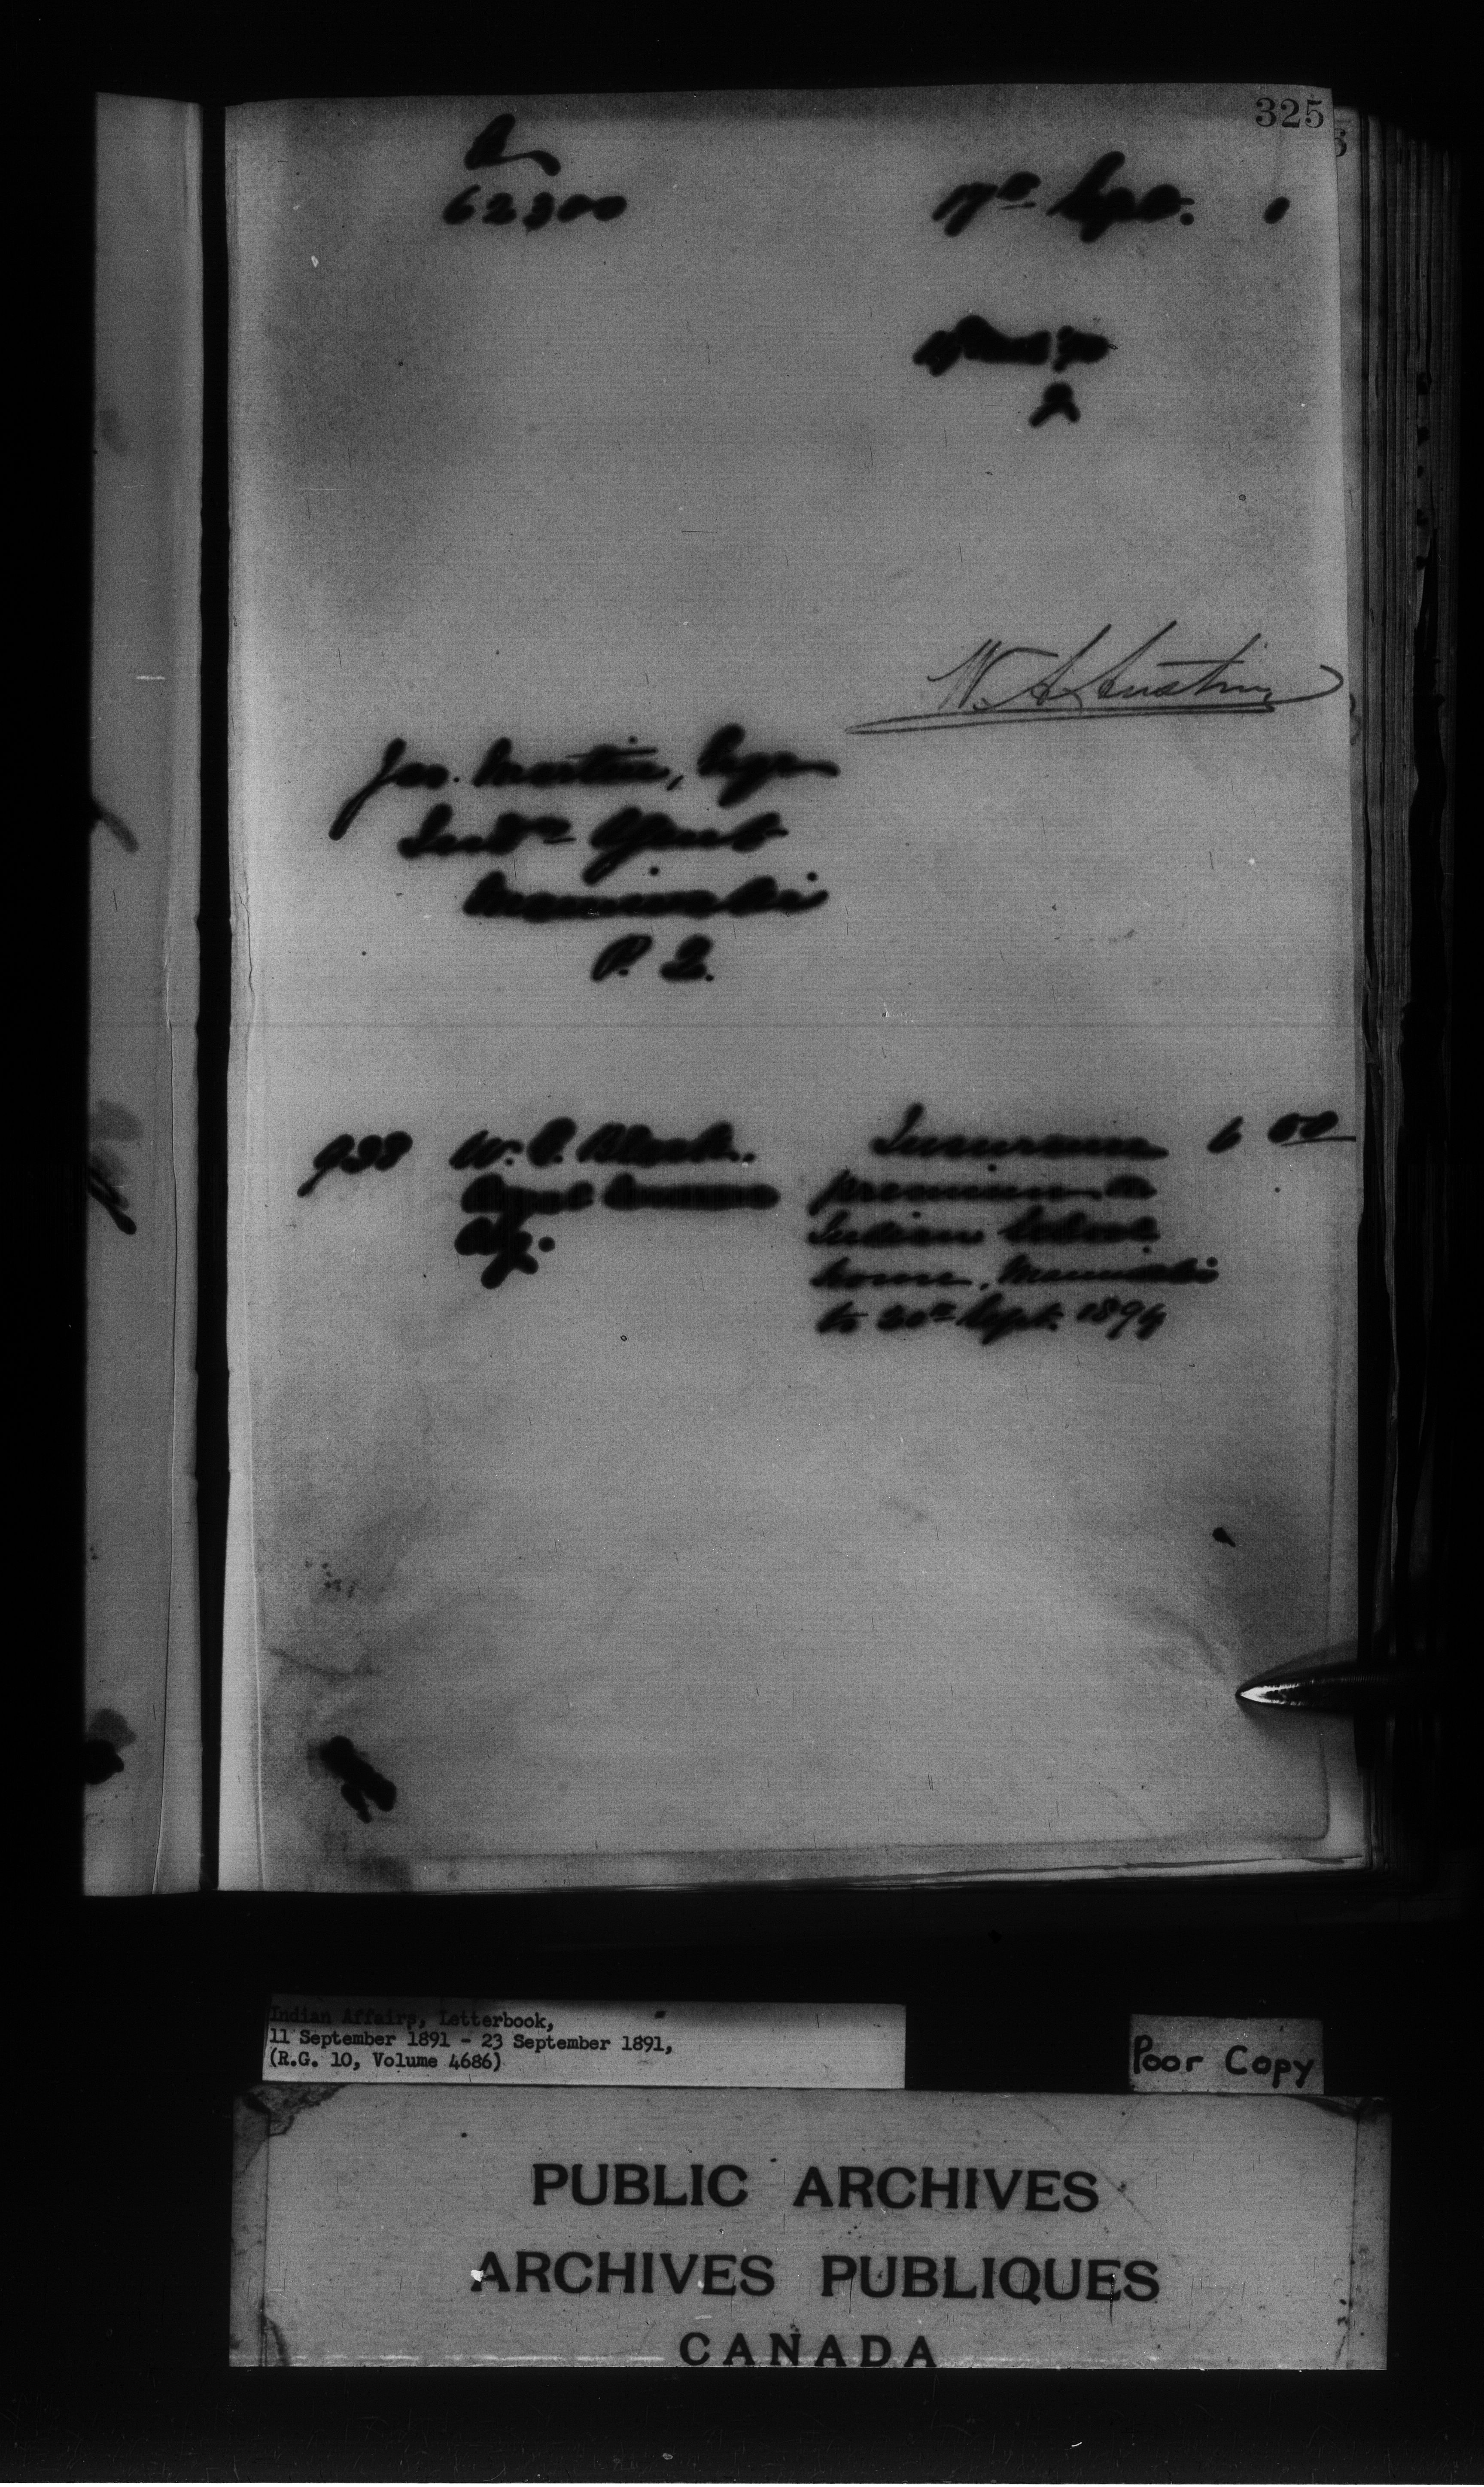 325
62300
17th Sept. 1
W. A. Austin
Jas. Martin, Esqr
Indn Agent
Maniwaki
P. Q.
938 W. C. Black. Insurance 6 00
Agent premium on
Indian School
house, Maniwaki
to 20th Sept. 1894
Indian Affairs, Letterbook,
11 September 1891 - 23 September 1891,
(R.G. 10, Volume 4686)
Poor Copy
PUBLIC ARCHIVES
ARCHIVES PUBLIQUES
CANADA